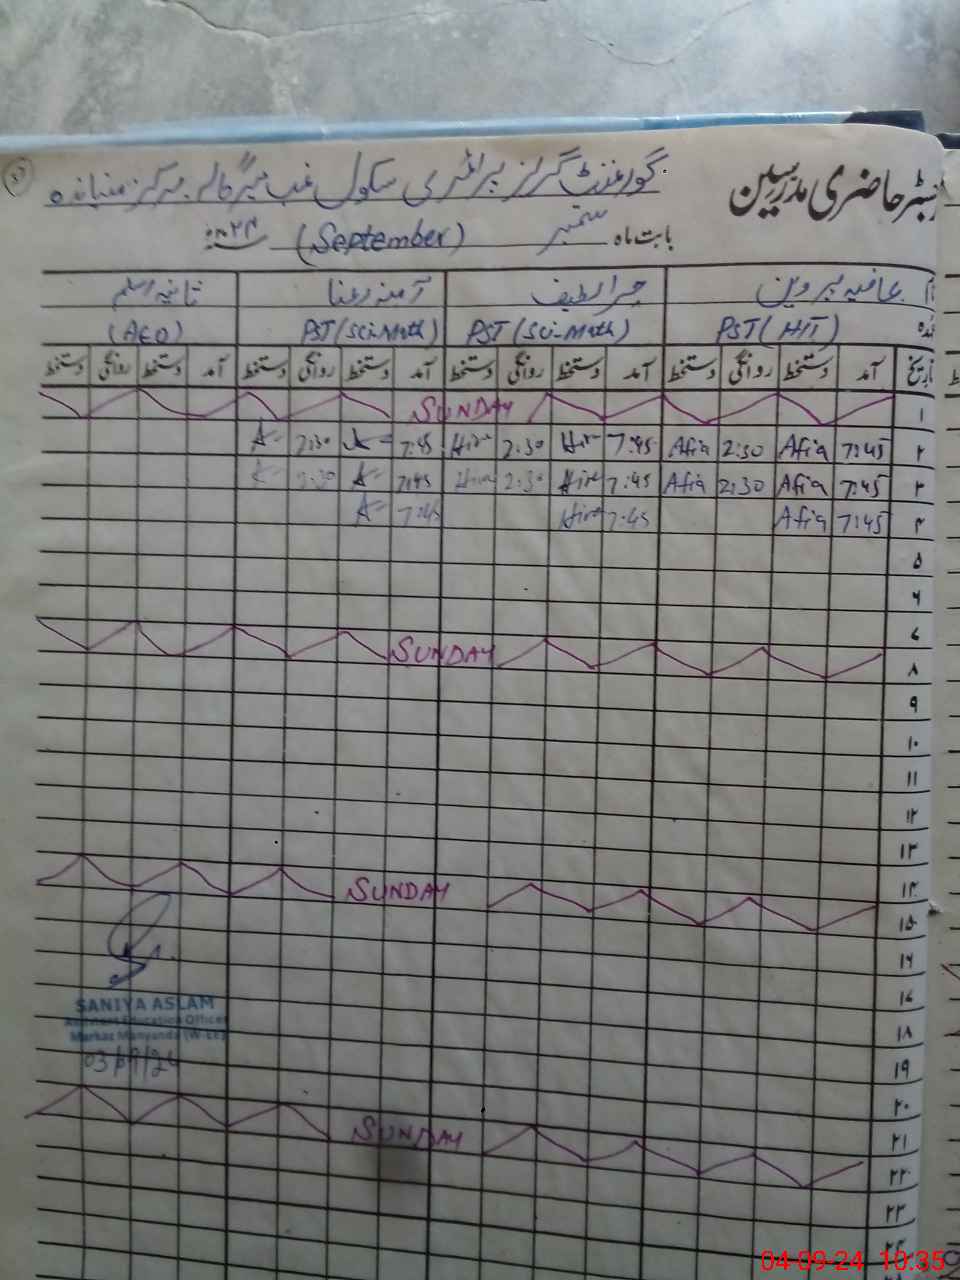 رجسٹر حاضری مدرسین
گورنمنٹ گرلز پرائمری سکول
بابت ماہ ستمبر (September) ۲۰۲۴ء
عافیہ پروین حرا لطیف آمنہ رعنا ثانیہ اسلم
PST (HIT) PST (Sci-Math) PST (Sci-Math) (AEO)
تاریخ آمد دستخط روانگی دستخط آمد دستخط روانگی دستخط آمد دستخط روانگی دستخط آمد دستخط روانگی دستخط
۱ SUNDAY
۲ 7:45 Afia 2:30 Afia 7:45 Hira 2:30 Hira 7:45 2:30
۳ 7:45 Afia 2:30 Afia 7:45 Hira 2:30 Hira 7:45 2:30
۴ 7:45 Afia 7:45 Hira 7:45
۵
۶
۷
۸ SUNDAY
۹
۱۰
۱۱
۱۲
۱۳
۱۴
۱۵ SUNDAY
۱۶
۱۷
۱۸
۱۹
۲۰
۲۱
۲۲ SUNDAY
۲۳
۲۴
SANIYA ASLAM
Assistant Education Officer
Markaz Manyanda (W-EE)
03/09/24
04-09-24 10:35